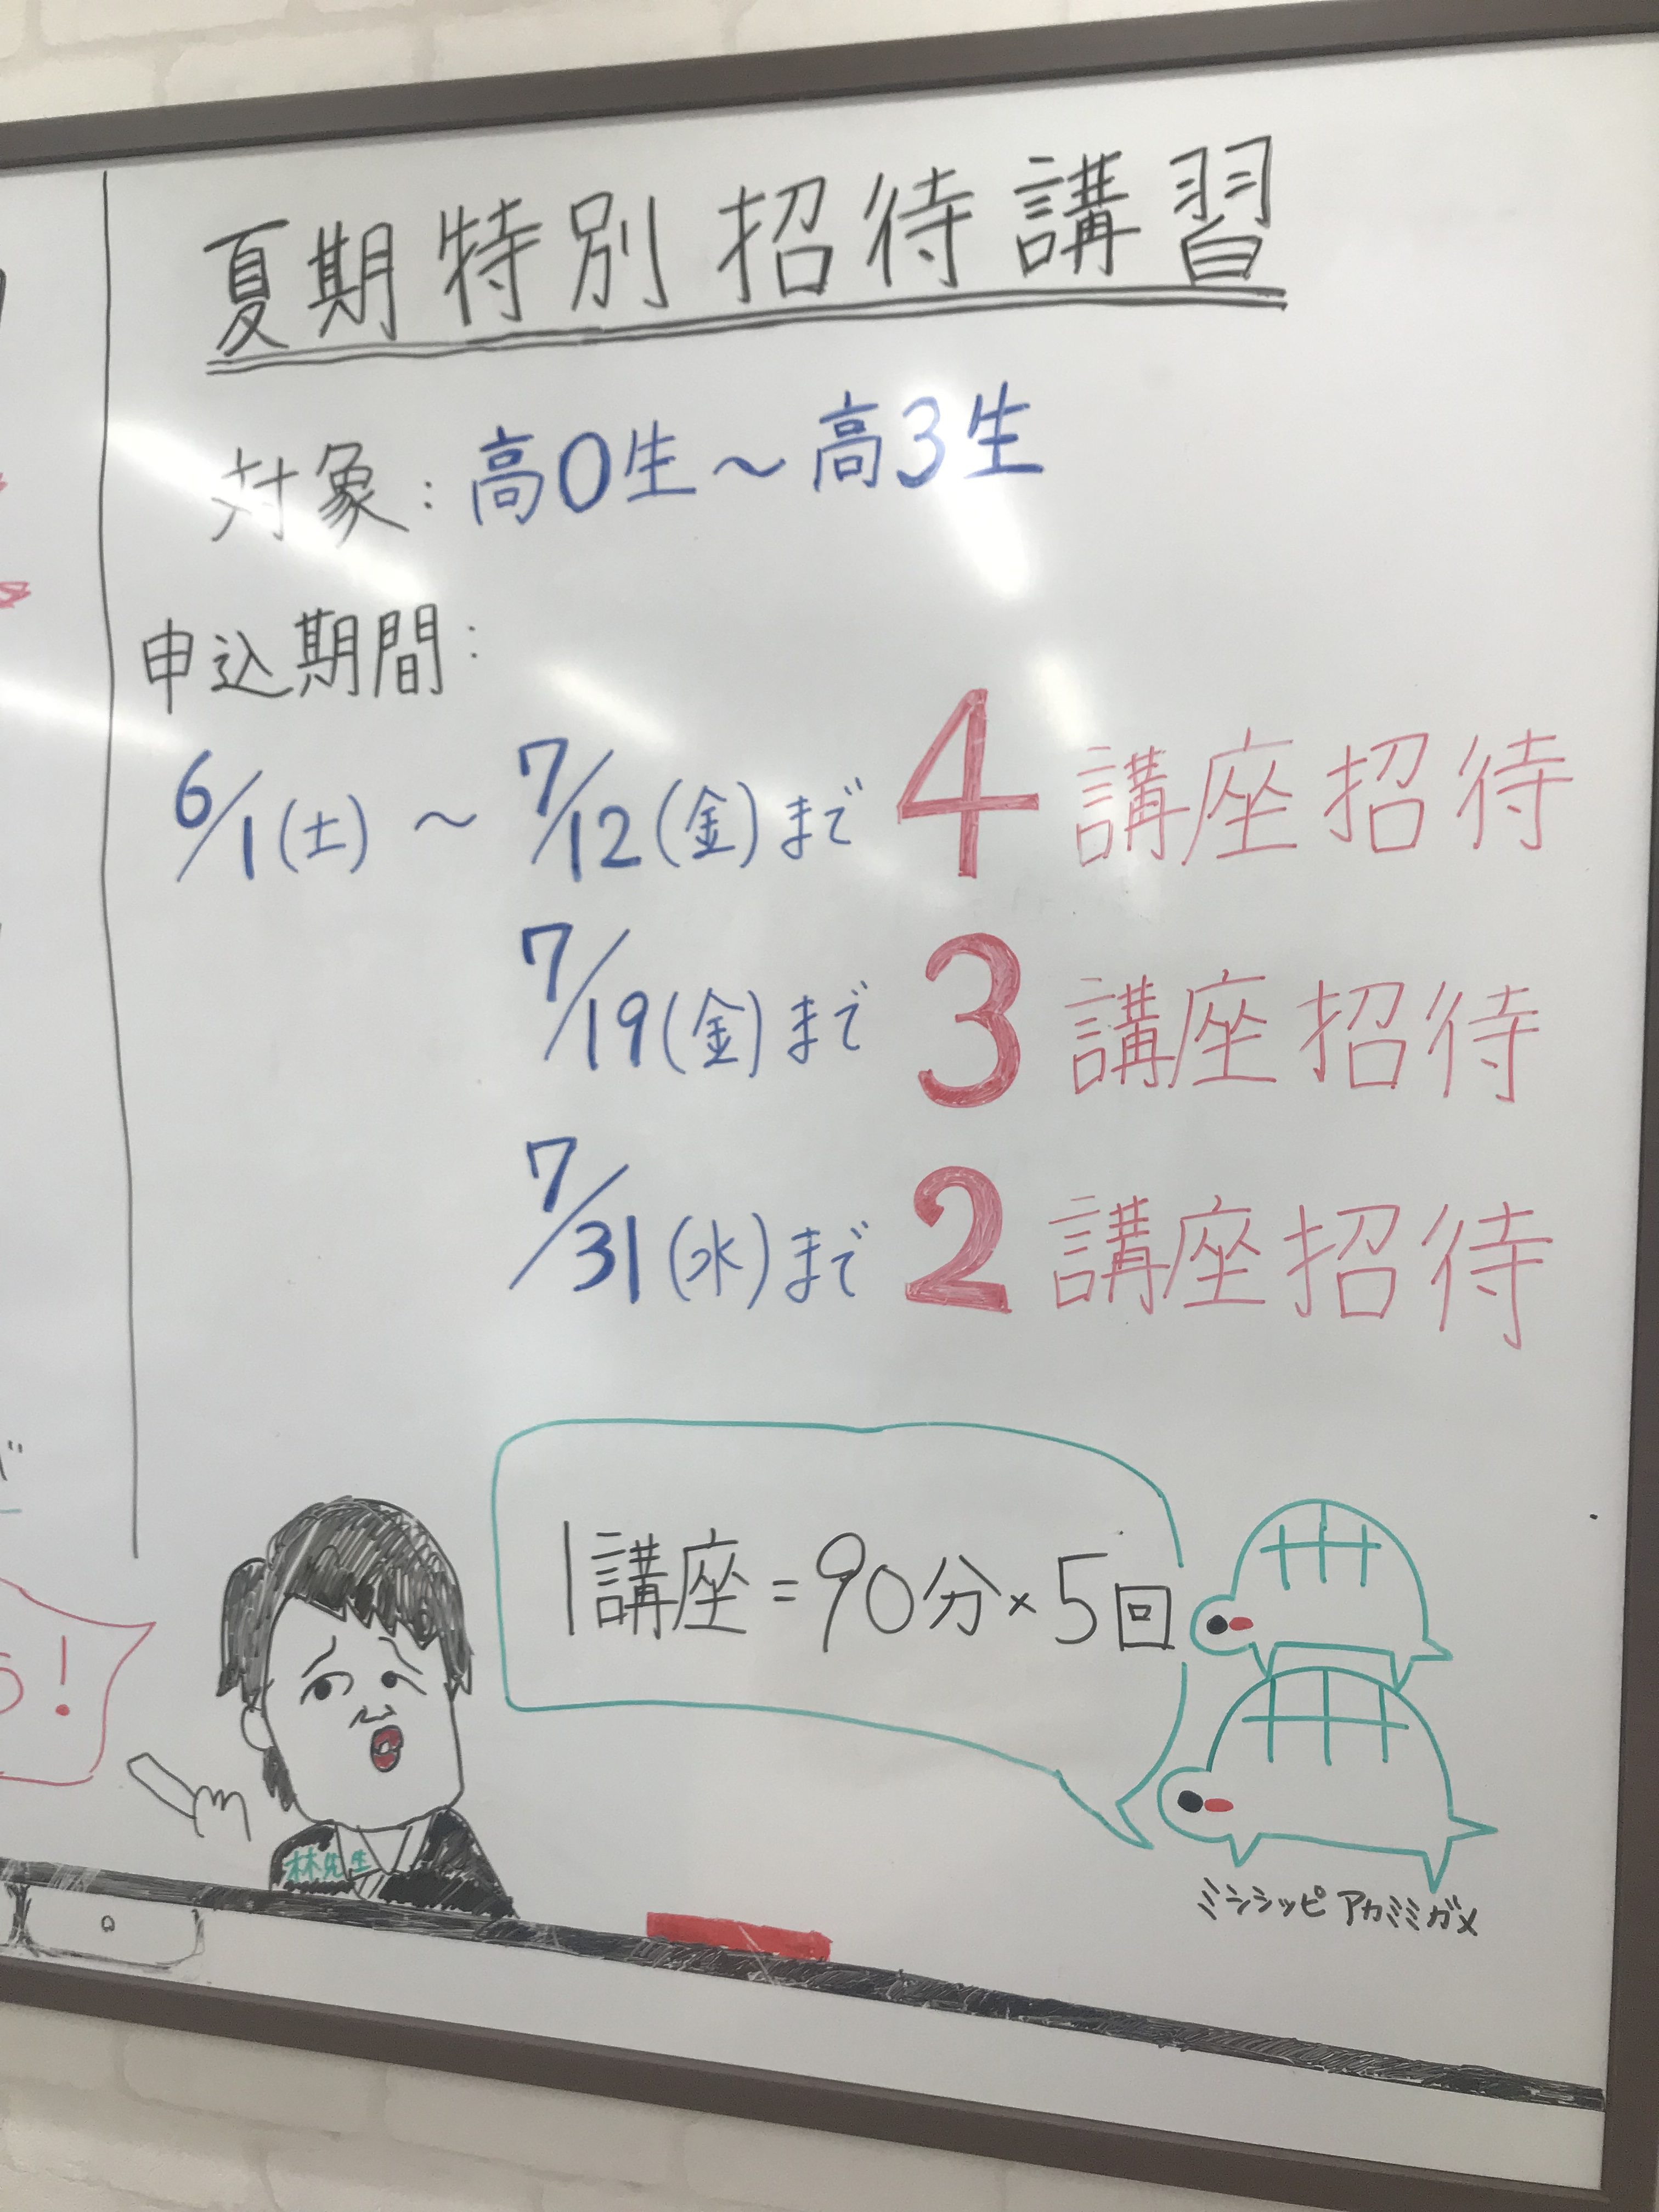 夏期特別招待講習
対象：高0生～高3生
申込期間：
6/1(土)～7/12(金)まで 4講座招待
7/19(金)まで 3講座招待
7/31(水)まで 2講座招待
1講座=90分×5回
林先生
ミシシッピアカミミガメ